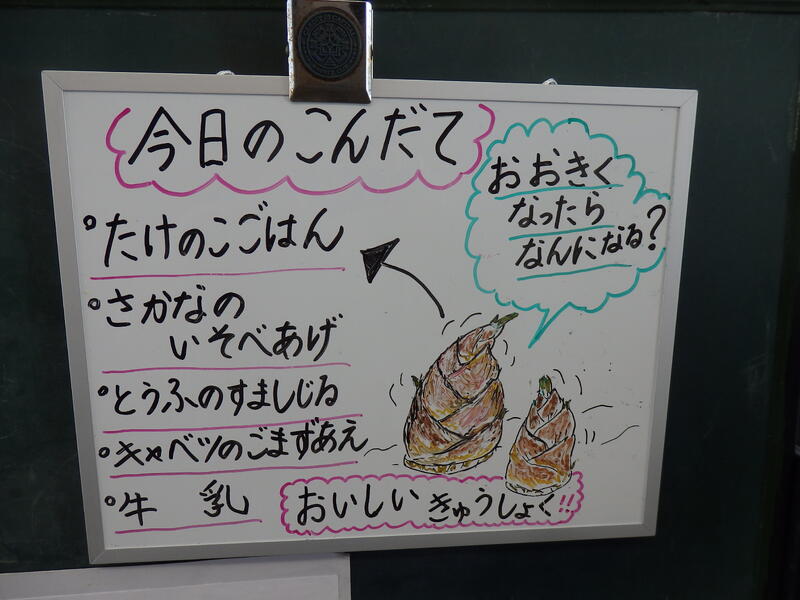 今日のこんだて
おおきく
なったら
なんになる?
°たけのこごはん
°さかなの
いそべあげ
°とうふのすましじる
°キャベツのごまずあえ
°牛 乳
おいしいきゅうしょく!!